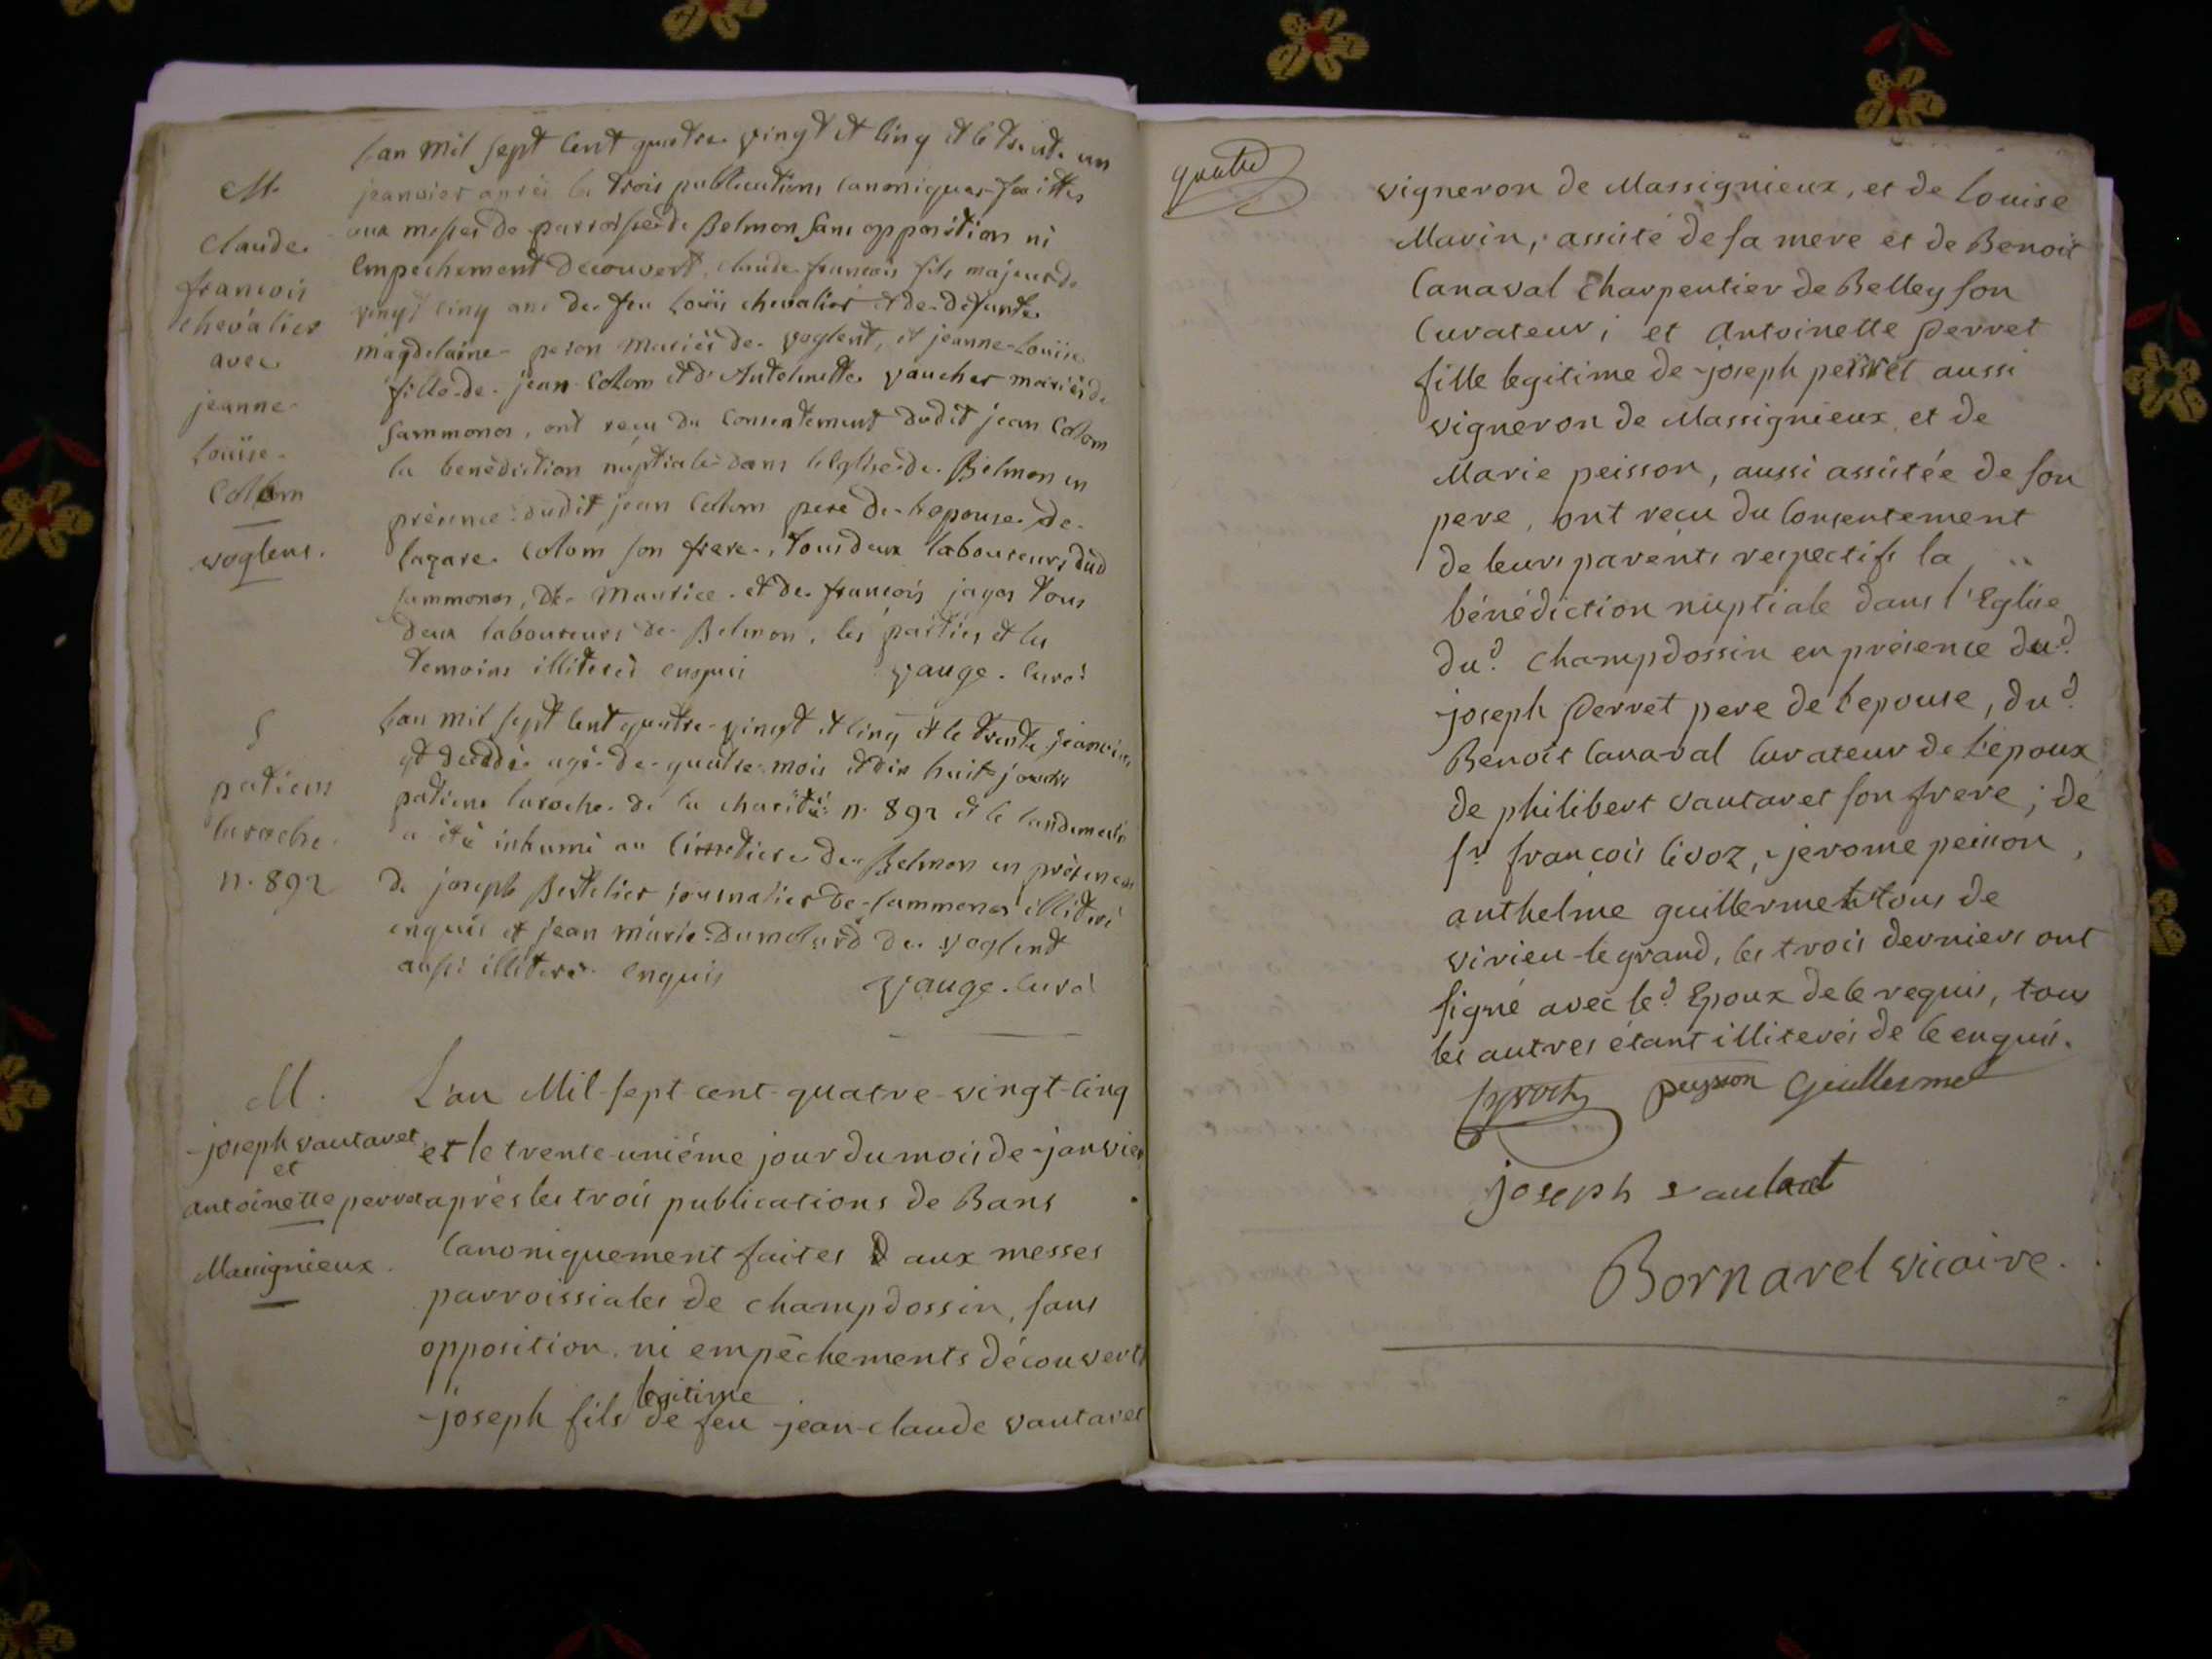 M.
Claude
francois
chevalier
avec
jeanne
louise
Colom
voglens.
lan mil sept cent quatre vingt et cinq et le trente un
jeanvier après les trois publications canoniques faittes
aux messes de parroisse de Belmon sans opposition ni
empechement decouvert, claude francois fils majeur de
vingt cinq ans de feu louis chevalier et de defunte
magdelaine peron mariés de voglent, et jeanne louise
fille de jean Colom et d'Anthelmette vaucher mariés de
sammonor, ont reçu du consentement dudit jean Colom
la benediction nuptiale dans leglise de Belmon en
présence dudit jean Colom pere de lepouse, de
lazare Colom son frere, tous deux laboureurs dud
sammonor, de Maurice et de francois jager tous
deux laboureurs de Belmon, les parties et les
temoins illiterés enquis vauge. curé
S
patiens
laroche
n. 892
lan mil sept cent quatre vingt et cinq et le trente jeanvier
est decedé agé de quatre mois et dix huit jours
patiens laroche de la charité n. 892 et le landemain
a été inhumé au cimetiere de Belmon en présence
de joseph Bertelier journalier de sammonor illiteré
enquis et jean marie Dumolard de voglent
aussi illiteré enquis vauge. curé
M.
joseph vautaret
et
antoinette perret
Massignieux.
L'an Mil-sept cent-quatre-vingt-cinq
et le trente-uniéme jour du mois de janvier
après les trois publications de Bans
canoniquement faites aux messes
parroissiales de champdossin, sans
opposition ni empêchements découverts
legitime
joseph fils de feu jean-claude vautaret
quatre
vigneron de Massignieux, et de louise
Marin, assisté de sa mere et de Benoit
Canaval Charpentier de Belley son
Curateur; et Antoinette perret
fille legitime de joseph perret aussi
vigneron de Massignieux et de
Marie peisson, aussi assistée de son
pere, ont recu du consentement
de leurs parents respectifs la
bénédiction nuptiale dans l'Eglise
dud. champdossin en présence dud.
joseph perret pere de l'epouse, dud.
Benoit Canaval curateur de l'époux
de philibert vautaret son frere; de
sr. françois livoz, jerome peisson,
anthelme guillermet tous de
virieu-le grand, les trois derniers ont
signé avec led. Epoux de ce requis, tous
les autres étant illiterés de ce enquis.
peysson Guillermet
joseph vautaret
Bornarel vicaire.